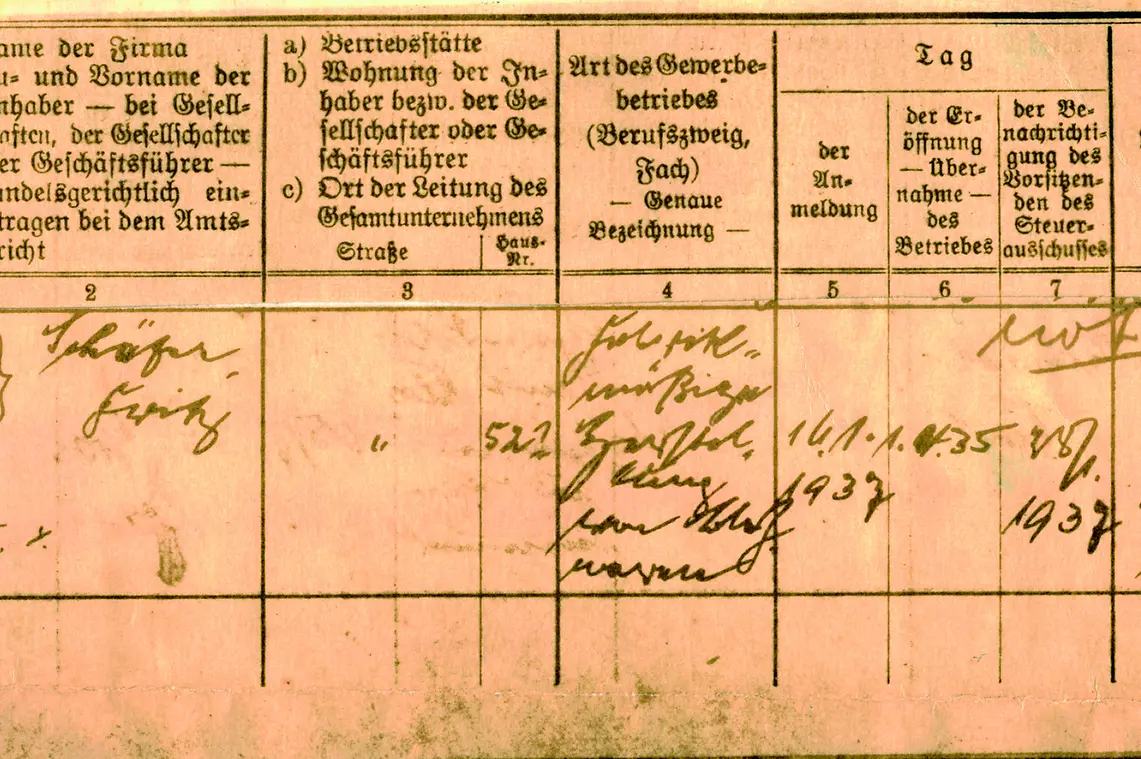 ame der Firma
u- und Vorname der
nhaber — bei Gesell-
aften, der Gesellschafter
er Geschäftsführer —
andelsgerichtlich ein-
tragen bei dem Amts-
richt
a) Betriebsstätte
b) Wohnung der In-
haber bezw. der Ge-
sellschafter oder Ge-
schäftsführer
c) Ort der Leitung des
Gesamtunternehmens
Straße
Haus-
Nr.
Art des Gewerbe-
betriebes
(Berufszweig,
Fach)
— Genaue
Bezeichnung —
Tag
der
An-
meldung
der Er-
öffnung
— Über-
nahme —
des
Betriebes
der Be-
nachrichti-
gung des
Vorsitzen-
den des
Steuer-
ausschusses
2
3
4
5
6
7
Schäfer
Fritz
"
52
Fabrik-
mäßige
Herstel-
lung
von
waren
14.1.
1937
1.4.35
1937